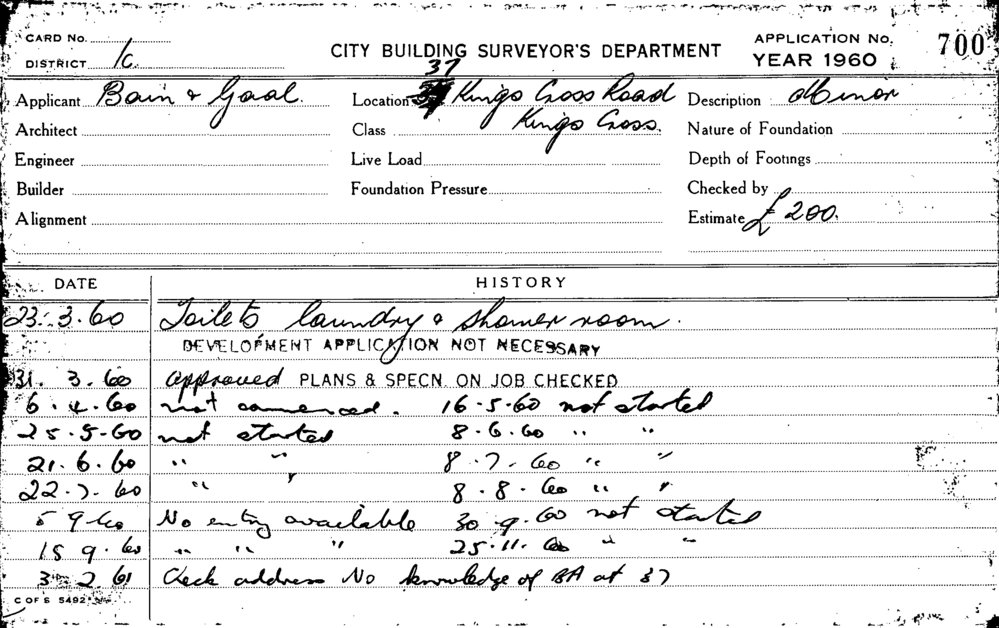 CARD No.
DISTRICT 1c.
CITY BUILDING SURVEYOR'S DEPARTMENT
APPLICATION No. 700
YEAR 1960
Applicant Bain & Goal.
Location 37 Kings Cross Road
Description Minor
Architect
Class Kings Cross.
Nature of Foundation
Engineer
Live Load
Depth of Footings
Builder
Foundation Pressure
Checked by
Alignment
Estimate £200.
DATE HISTORY
23.3.60 Toilets laundry & shower room.
DEVELOPMENT APPLICATION NOT NECESSARY
31.3.60 approved PLANS & SPECN. ON JOB CHECKED
6.4.60 not commenced. 16-5-60 not started
25.5-60 not started 8-6.60 " "
21.6.60 " " 8-7-60 " "
22-7-60 " " 8-8-60 " "
5 9-60 No entry available 30-9-60 not started
15 9.60 " " " 25-11-60 " "
3 2.61 Check address No knowledge of BA at 37
C OF S 5492